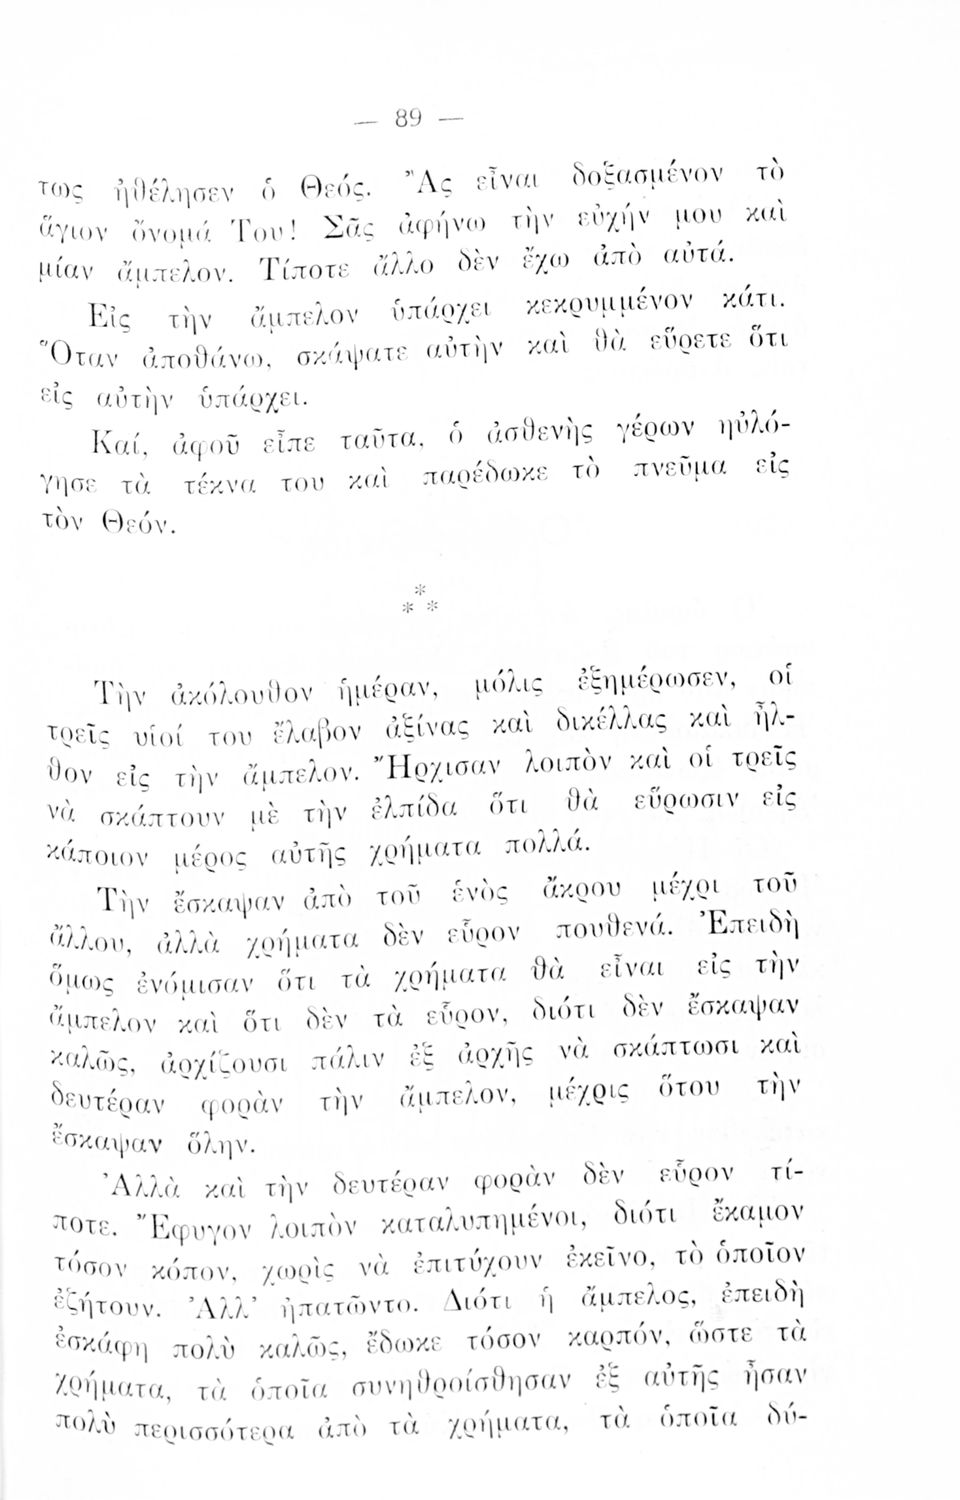 — 89 —
τως ἠθέλησεν ὁ Θεός. Ἂς εἶναι δοξασμένον τὸ
ἅγιον ὄνομά Του! Σᾶς ἀφήνω τὴν εὐχήν μου καὶ
μίαν ἄμπελον. Τίποτε ἄλλο δὲν ἔχω ἀπὸ αὐτά.
Εἰς τὴν ἄμπελον ὑπάρχει κεκρυμμένον κάτι.
Ὅταν ἀποθάνω, σκάψατε αὐτὴν καὶ θὰ εὕρετε ὅτι
εἰς αὐτὴν ὑπάρχει.
Καί, ἀφοῦ εἶπε ταῦτα, ὁ ἀσθενὴς γέρων ηὐλό-
γησε τὰ τέκνα του καὶ παρέδωκε τὸ πνεῦμα εἰς
τὸν Θεόν.
*
* *
Τὴν ἀκόλουθον ἡμέραν, μόλις ἐξημέρωσεν, οἱ
τρεῖς υἱοί του ἔλαβον ἀξίνας καὶ δικέλλας καὶ ἦλ-
θον εἰς τὴν ἄμπελον. Ἤρχισαν λοιπὸν καὶ οἱ τρεῖς
νὰ σκάπτουν μὲ τὴν ἐλπίδα ὅτι θὰ εὕρωσιν εἰς
κάποιον μέρος αὐτῆς χρήματα πολλά.
Τὴν ἔσκαψαν ἀπὸ τοῦ ἑνὸς ἄκρου μέχρι τοῦ
ἄλλου, ἀλλὰ χρήματα δὲν εὗρον πουθενά. Ἐπειδὴ
ὅμως ἐνόμισαν ὅτι τὰ χρήματα θὰ εἶναι εἰς τὴν
ἄμπελον καὶ ὅτι δὲν τὰ εὗρον, διότι δὲν ἔσκαψαν
καλῶς, ἀρχίζουσι πάλιν ἐξ ἀρχῆς νὰ σκάπτωσι καὶ
δευτέραν φορὰν τὴν ἄμπελον, μέχρις ὅτου τὴν
ἔσκαψαν ὅλην.
Ἀλλὰ καὶ τὴν δευτέραν φορὰν δὲν εὗρον τί-
ποτε. Ἔφυγον λοιπὸν καταλυπημένοι, διότι ἔκαμον
τόσον κόπον, χωρὶς νὰ ἐπιτύχουν ἐκεῖνο, τὸ ὁποῖον
ἐζήτουν. Ἀλλ’ ἠπατῶντο. Διότι ἡ ἄμπελος, ἐπειδὴ
ἐσκάφη πολὺ καλῶς, ἔδωκε τόσον καρπόν, ὥστε τὰ
χρήματα, τὰ ὁποῖα συνηθροίσθησαν ἐξ αὐτῆς ἦσαν
πολὺ περισσότερα ἀπὸ τὰ χρήματα, τὰ ὁποῖα δύ-